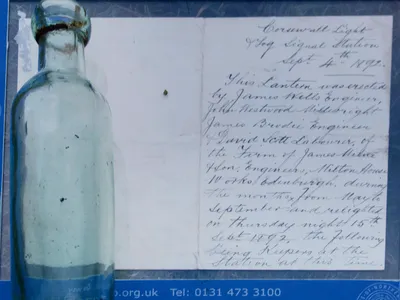 Corsewall Light
& Fog Signal Station
Sept 4th 1892.
This Lantern was erected
by James Wells Engineer,
John Westwood Millwright
James Brodie Engineer
& David Scott Labourer, of
the Firm of James Milne
& Son Engineers, Milton House
Works, Edinburgh, during
the months from May to
September and relighted
on Thursday night 15th
Sept 1892. the following
being Keepers at the
Station at this time
.org.uk Tel: 0131 473 3100